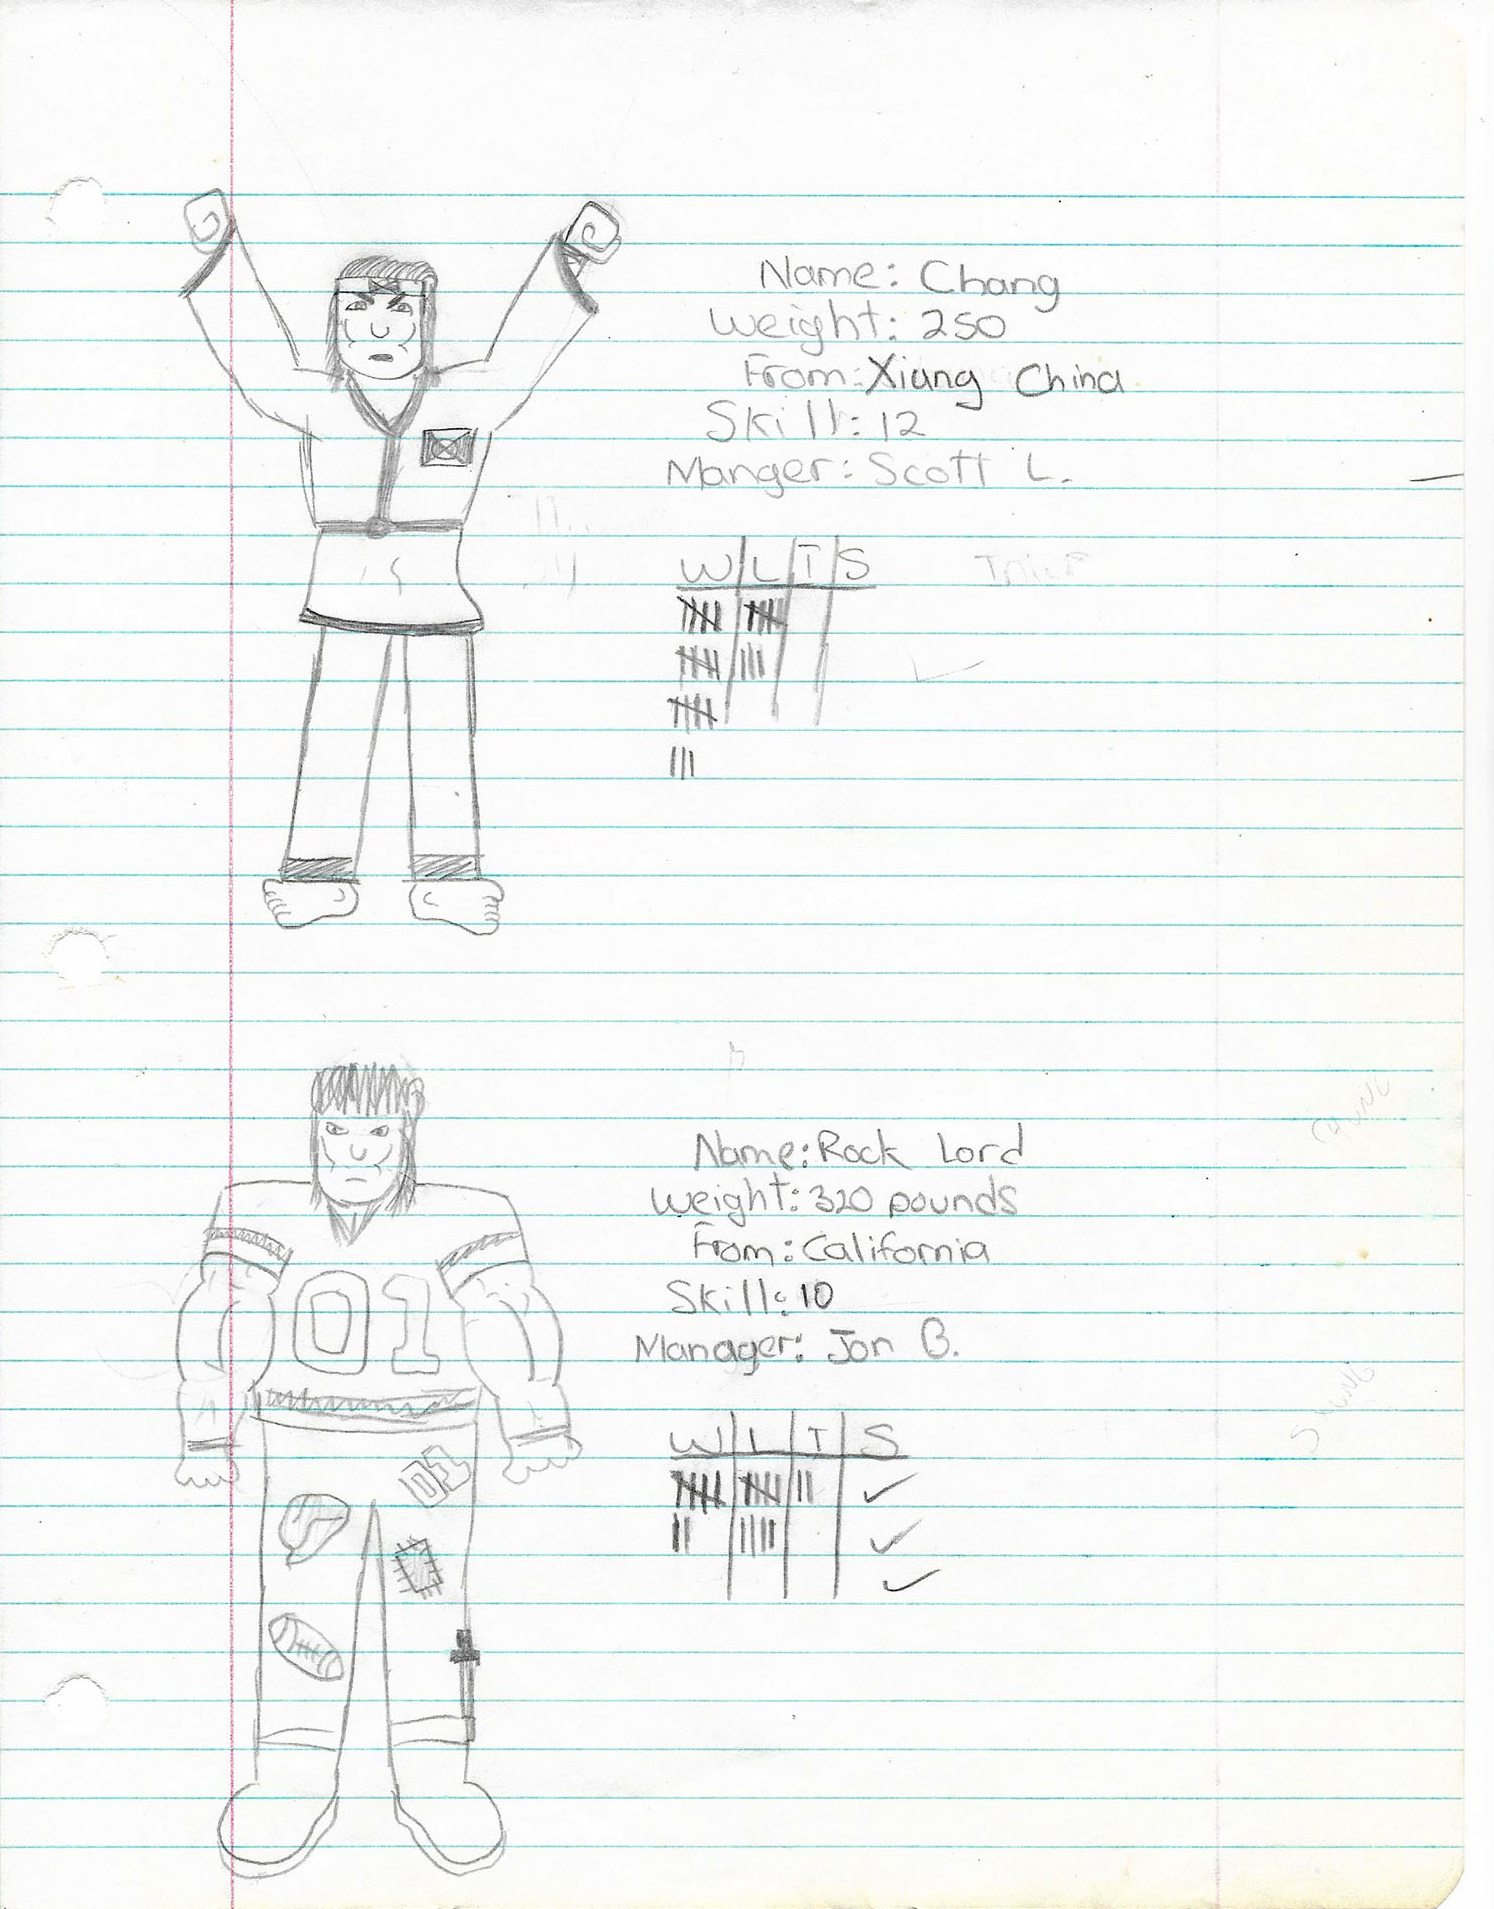 Name: Chang
Weight: 250
From: Xiang China
Skill: 12
Manger: Scott L.
W L T S
Name: Rock Lord
Weight: 320 pounds
From: California
Skill: 10
Manager: Jon B.
01
W L T S
01